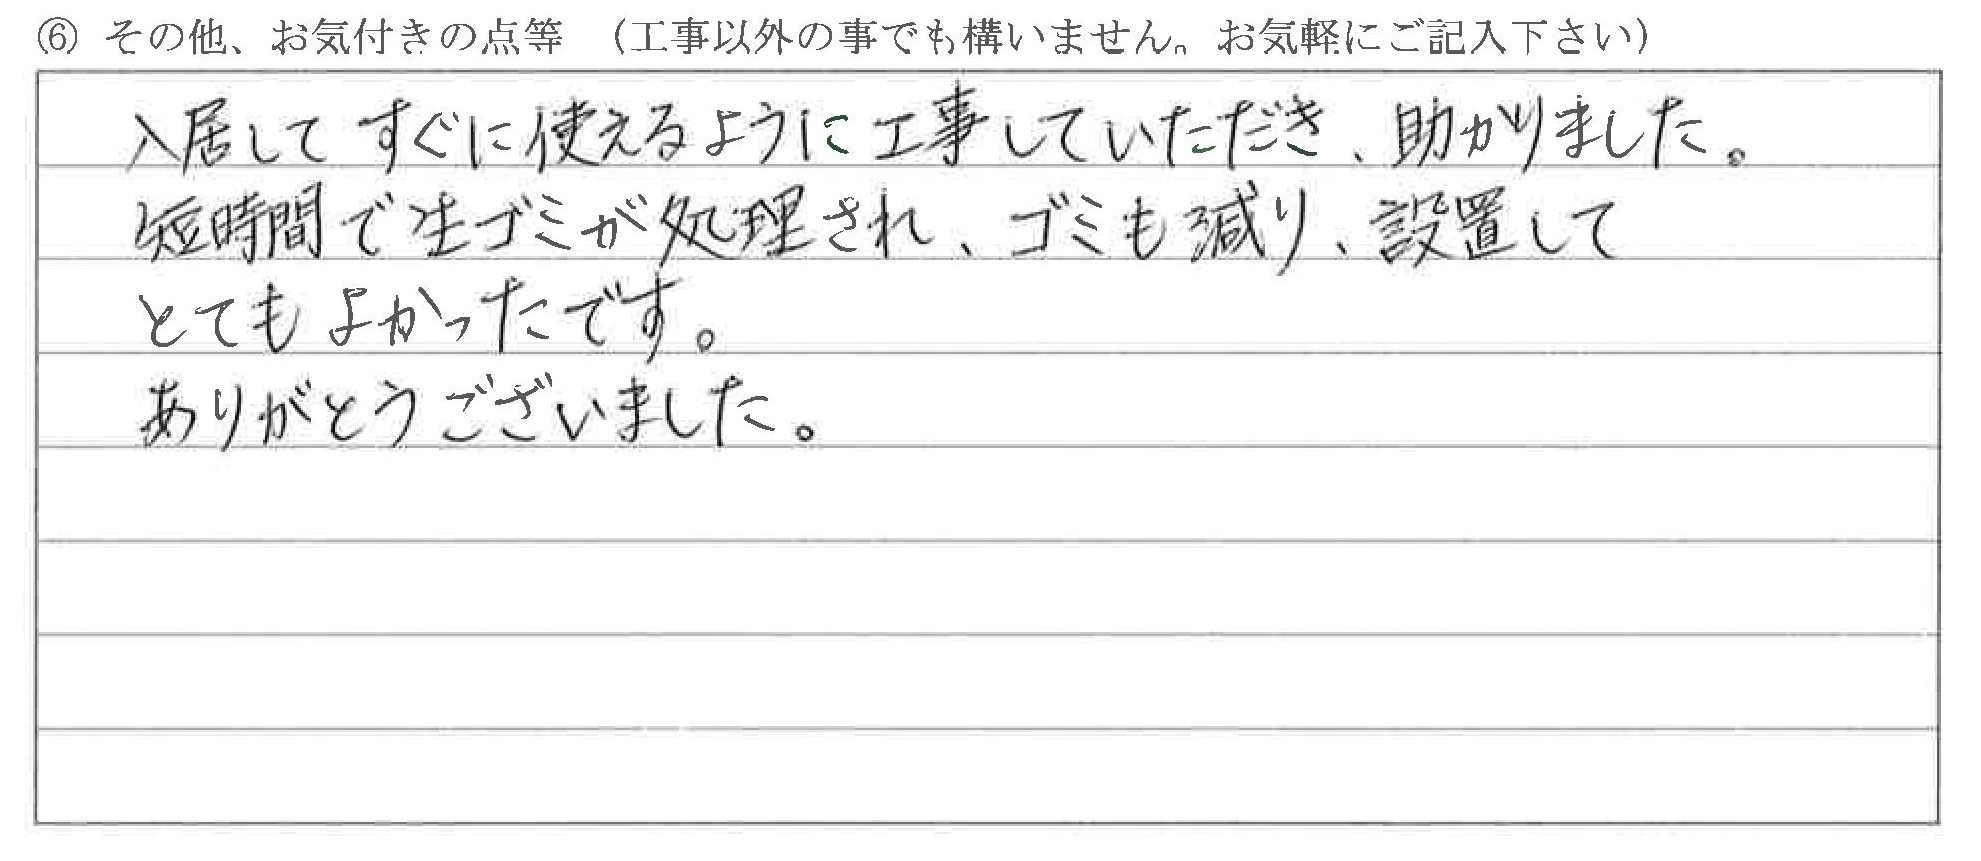 ⑥ その他、お気付きの点等 （工事以外の事でも構いません。お気軽にご記入下さい）
入居してすぐに使えるように工事していただき、助かりました。
短時間で生ゴミが処理され、ゴミも減り、設置して
とてもよかったです。
ありがとうございました。